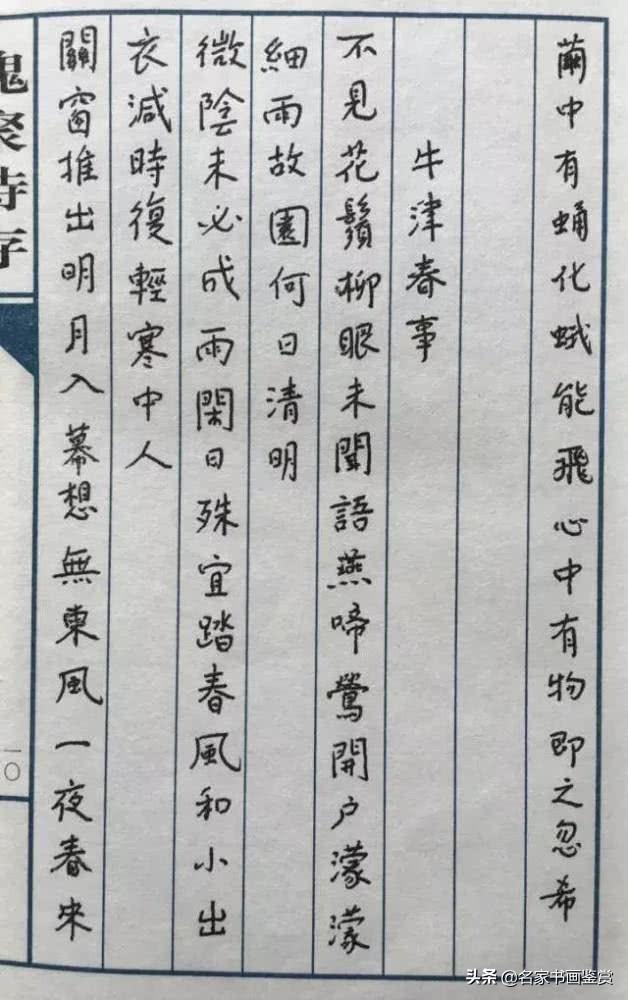 繭中有蛹化蛾能飛心中有物即之忽希
牛津春事
不見花鬚柳眼未聞語燕啼鶯開户濛濛
細雨故園何日清明
微陰未必成雨閑日殊宜踏春風和小出
衣減時復輕寒中人
關窗推出明月入幕想無東風一夜春来
槐聚詩存
一〇
头条 @名家书画鉴赏